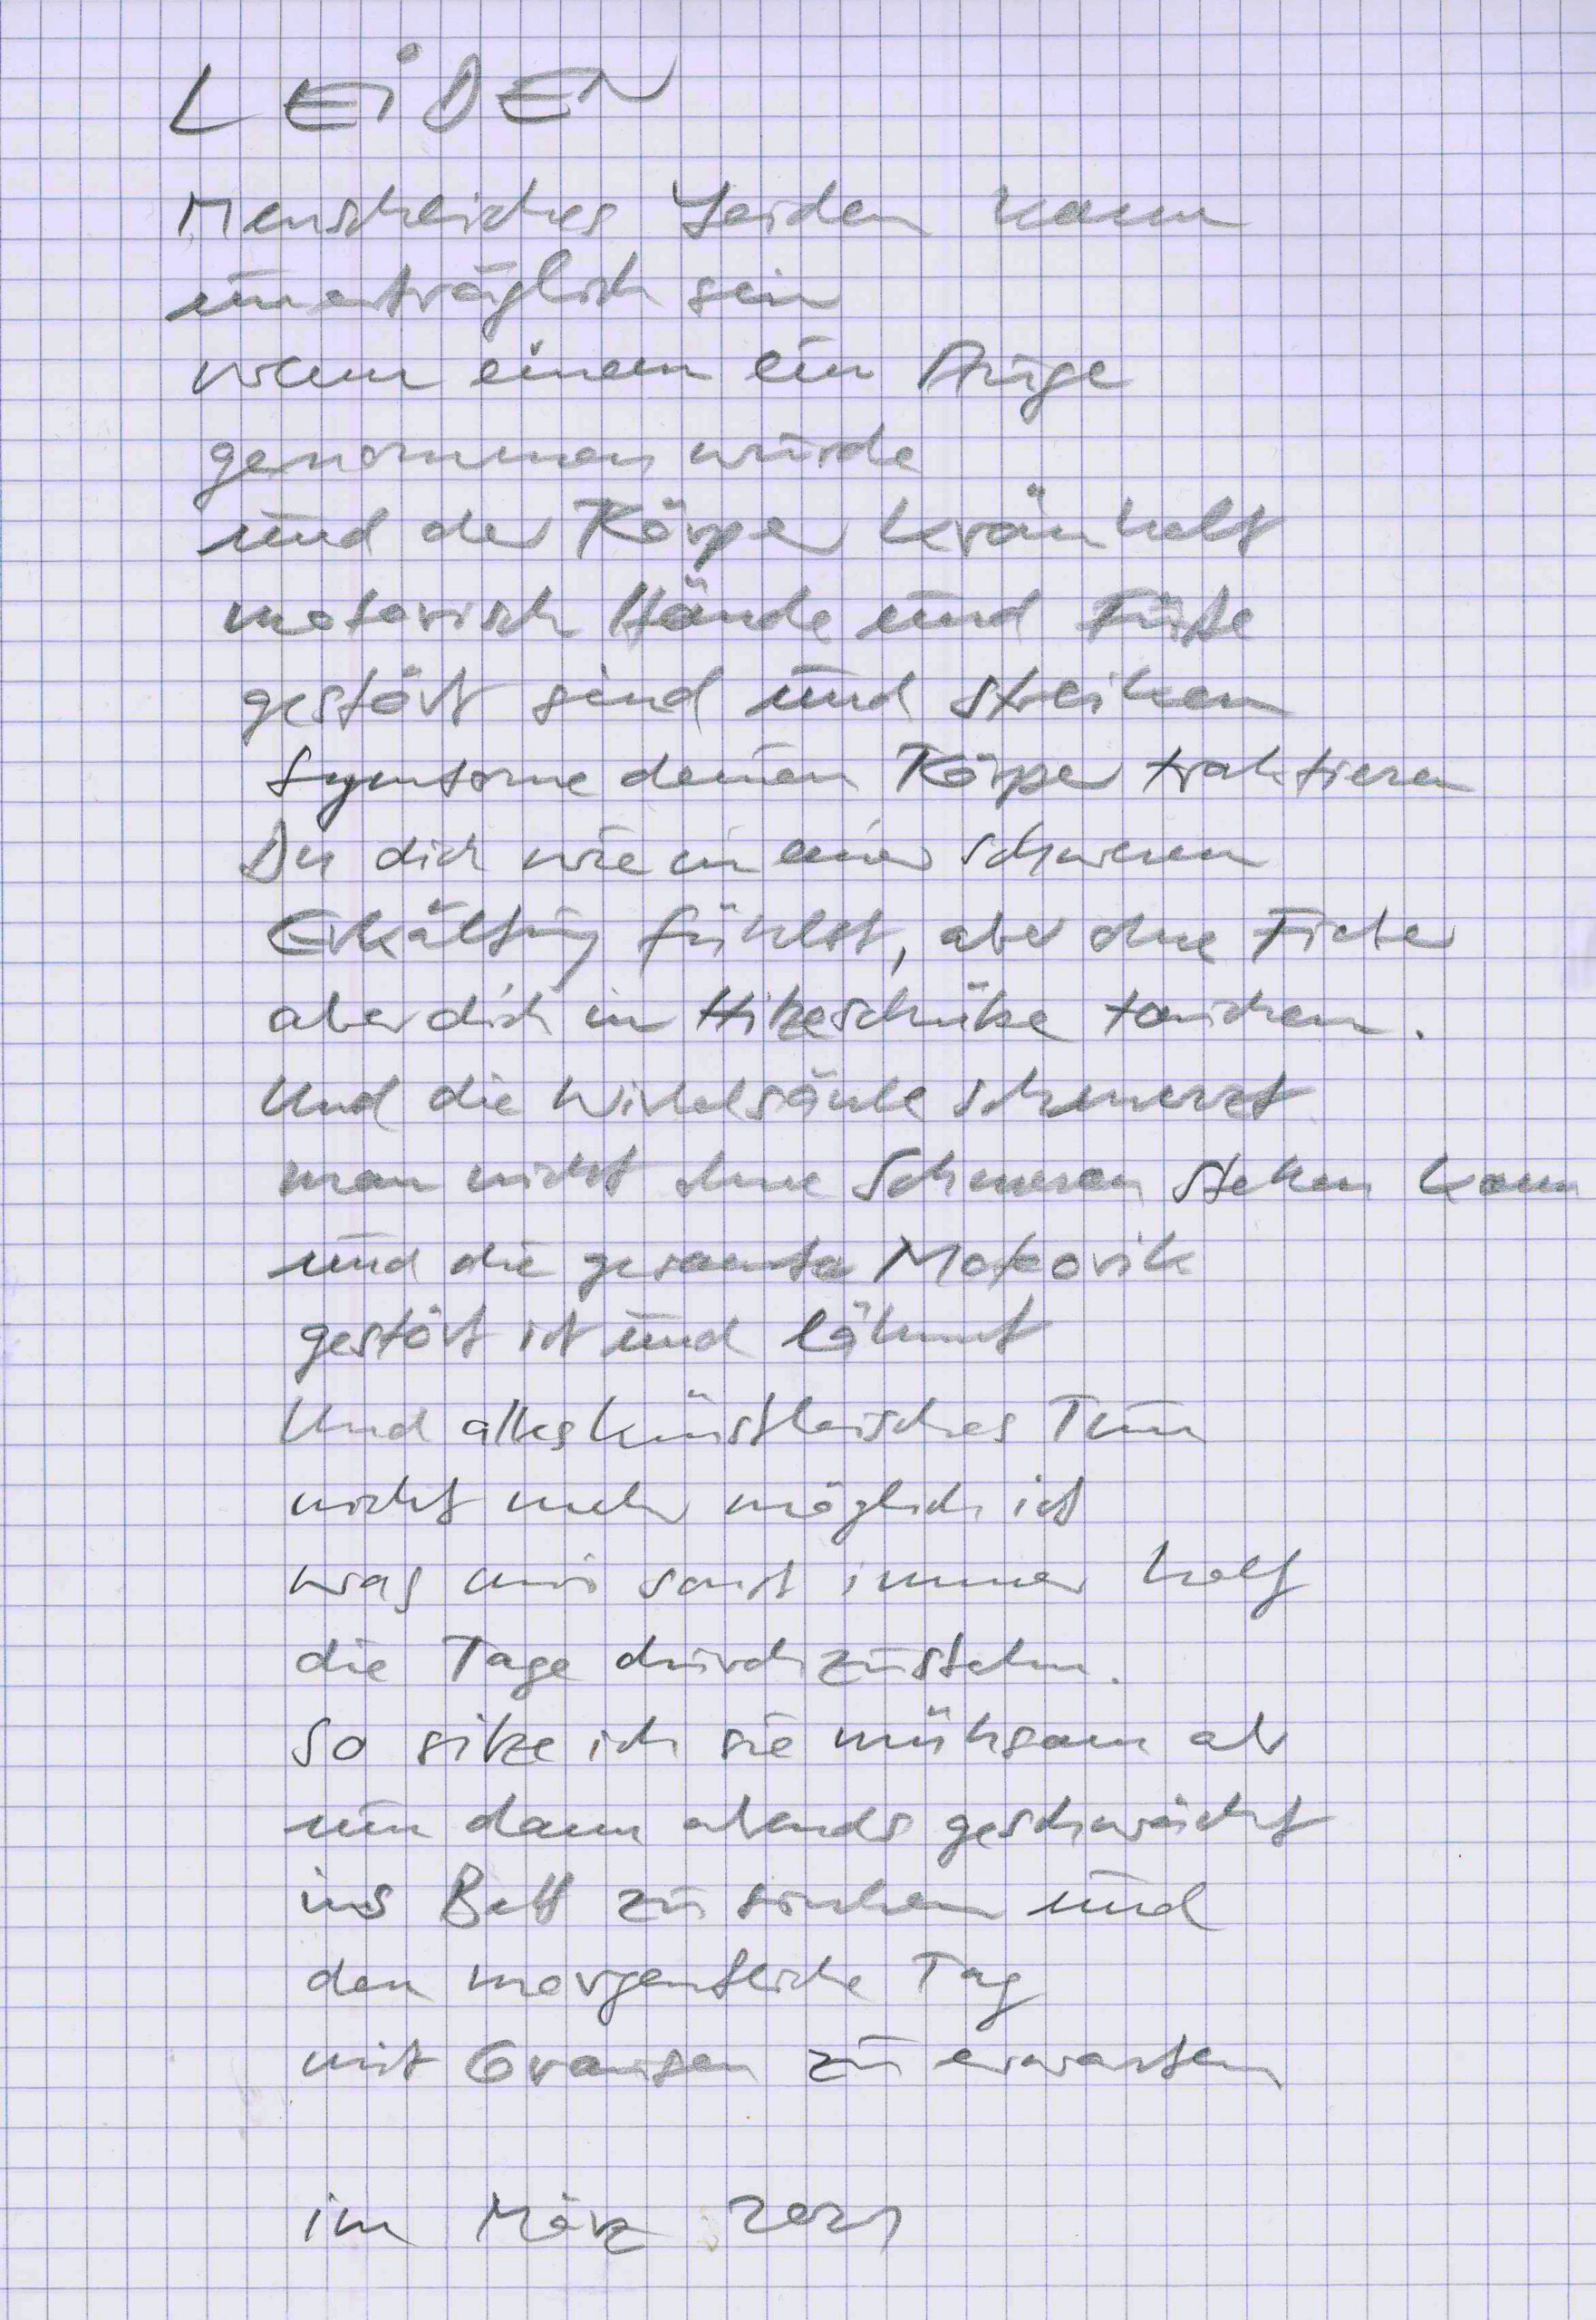 LEiDEN
Menschliches Leiden kann
unerträglich sein
wenn einem ein Auge
genommen wurde
und der Körper kränkelt
motorisch Hände und Füße
gestört sind und streiken
Symtome deinen Körper traktieren
Du dich wie in einer schweren
Erkältung fühlst, aber ohne Fieber
aber dich in Hitzeschübe tauchen.
Und die Wirbelsäule schmerzt
man nicht ohne Schmerzen stehen kann
und die gesamte Motorik
gestört ist und lähmt
Und alles künstlerisches Tun
nicht mehr möglich ist
was mir sonst immer half
die Tage durchzustehn.
So sitze ich sie mühsam ab
um dann abends geschwächt
ins Bett zu sinken und
den morgentliche Tag
mit Grausen zu erwarten
im März 2021